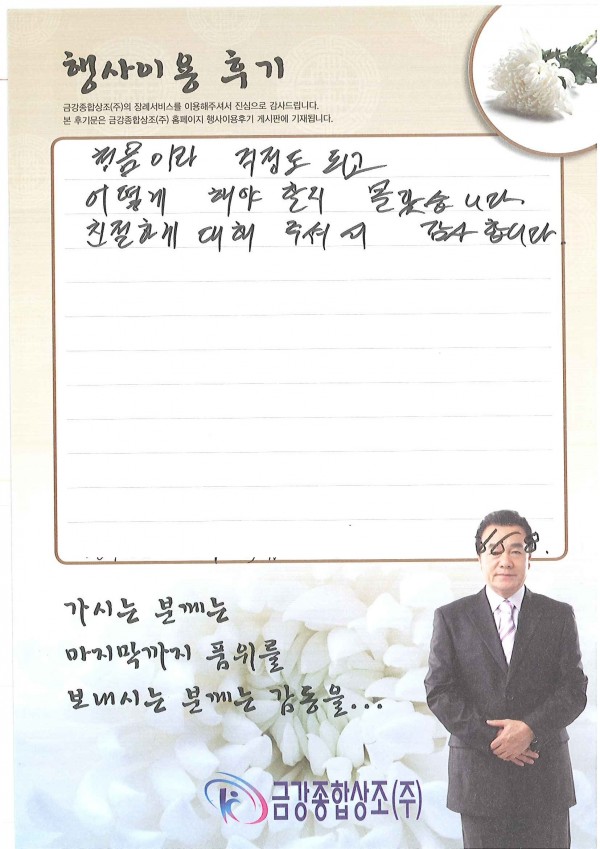 행사이용 후기
금강종합상조(주)의 장례서비스를 이용해주셔서 진심으로 감사드립니다.
본 후기문은 금강종합상조(주) 홈페이지 행사이용후기 게시판에 기재됩니다.
처음이라 걱정도 되고
어떻게 해야 할지 몰랐습니다.
친절하게 대해 주셔서 감사합니다
가시는 분께는
마지막까지 품위를
보내시는 분께는 감동을...
금강종합상조(주)